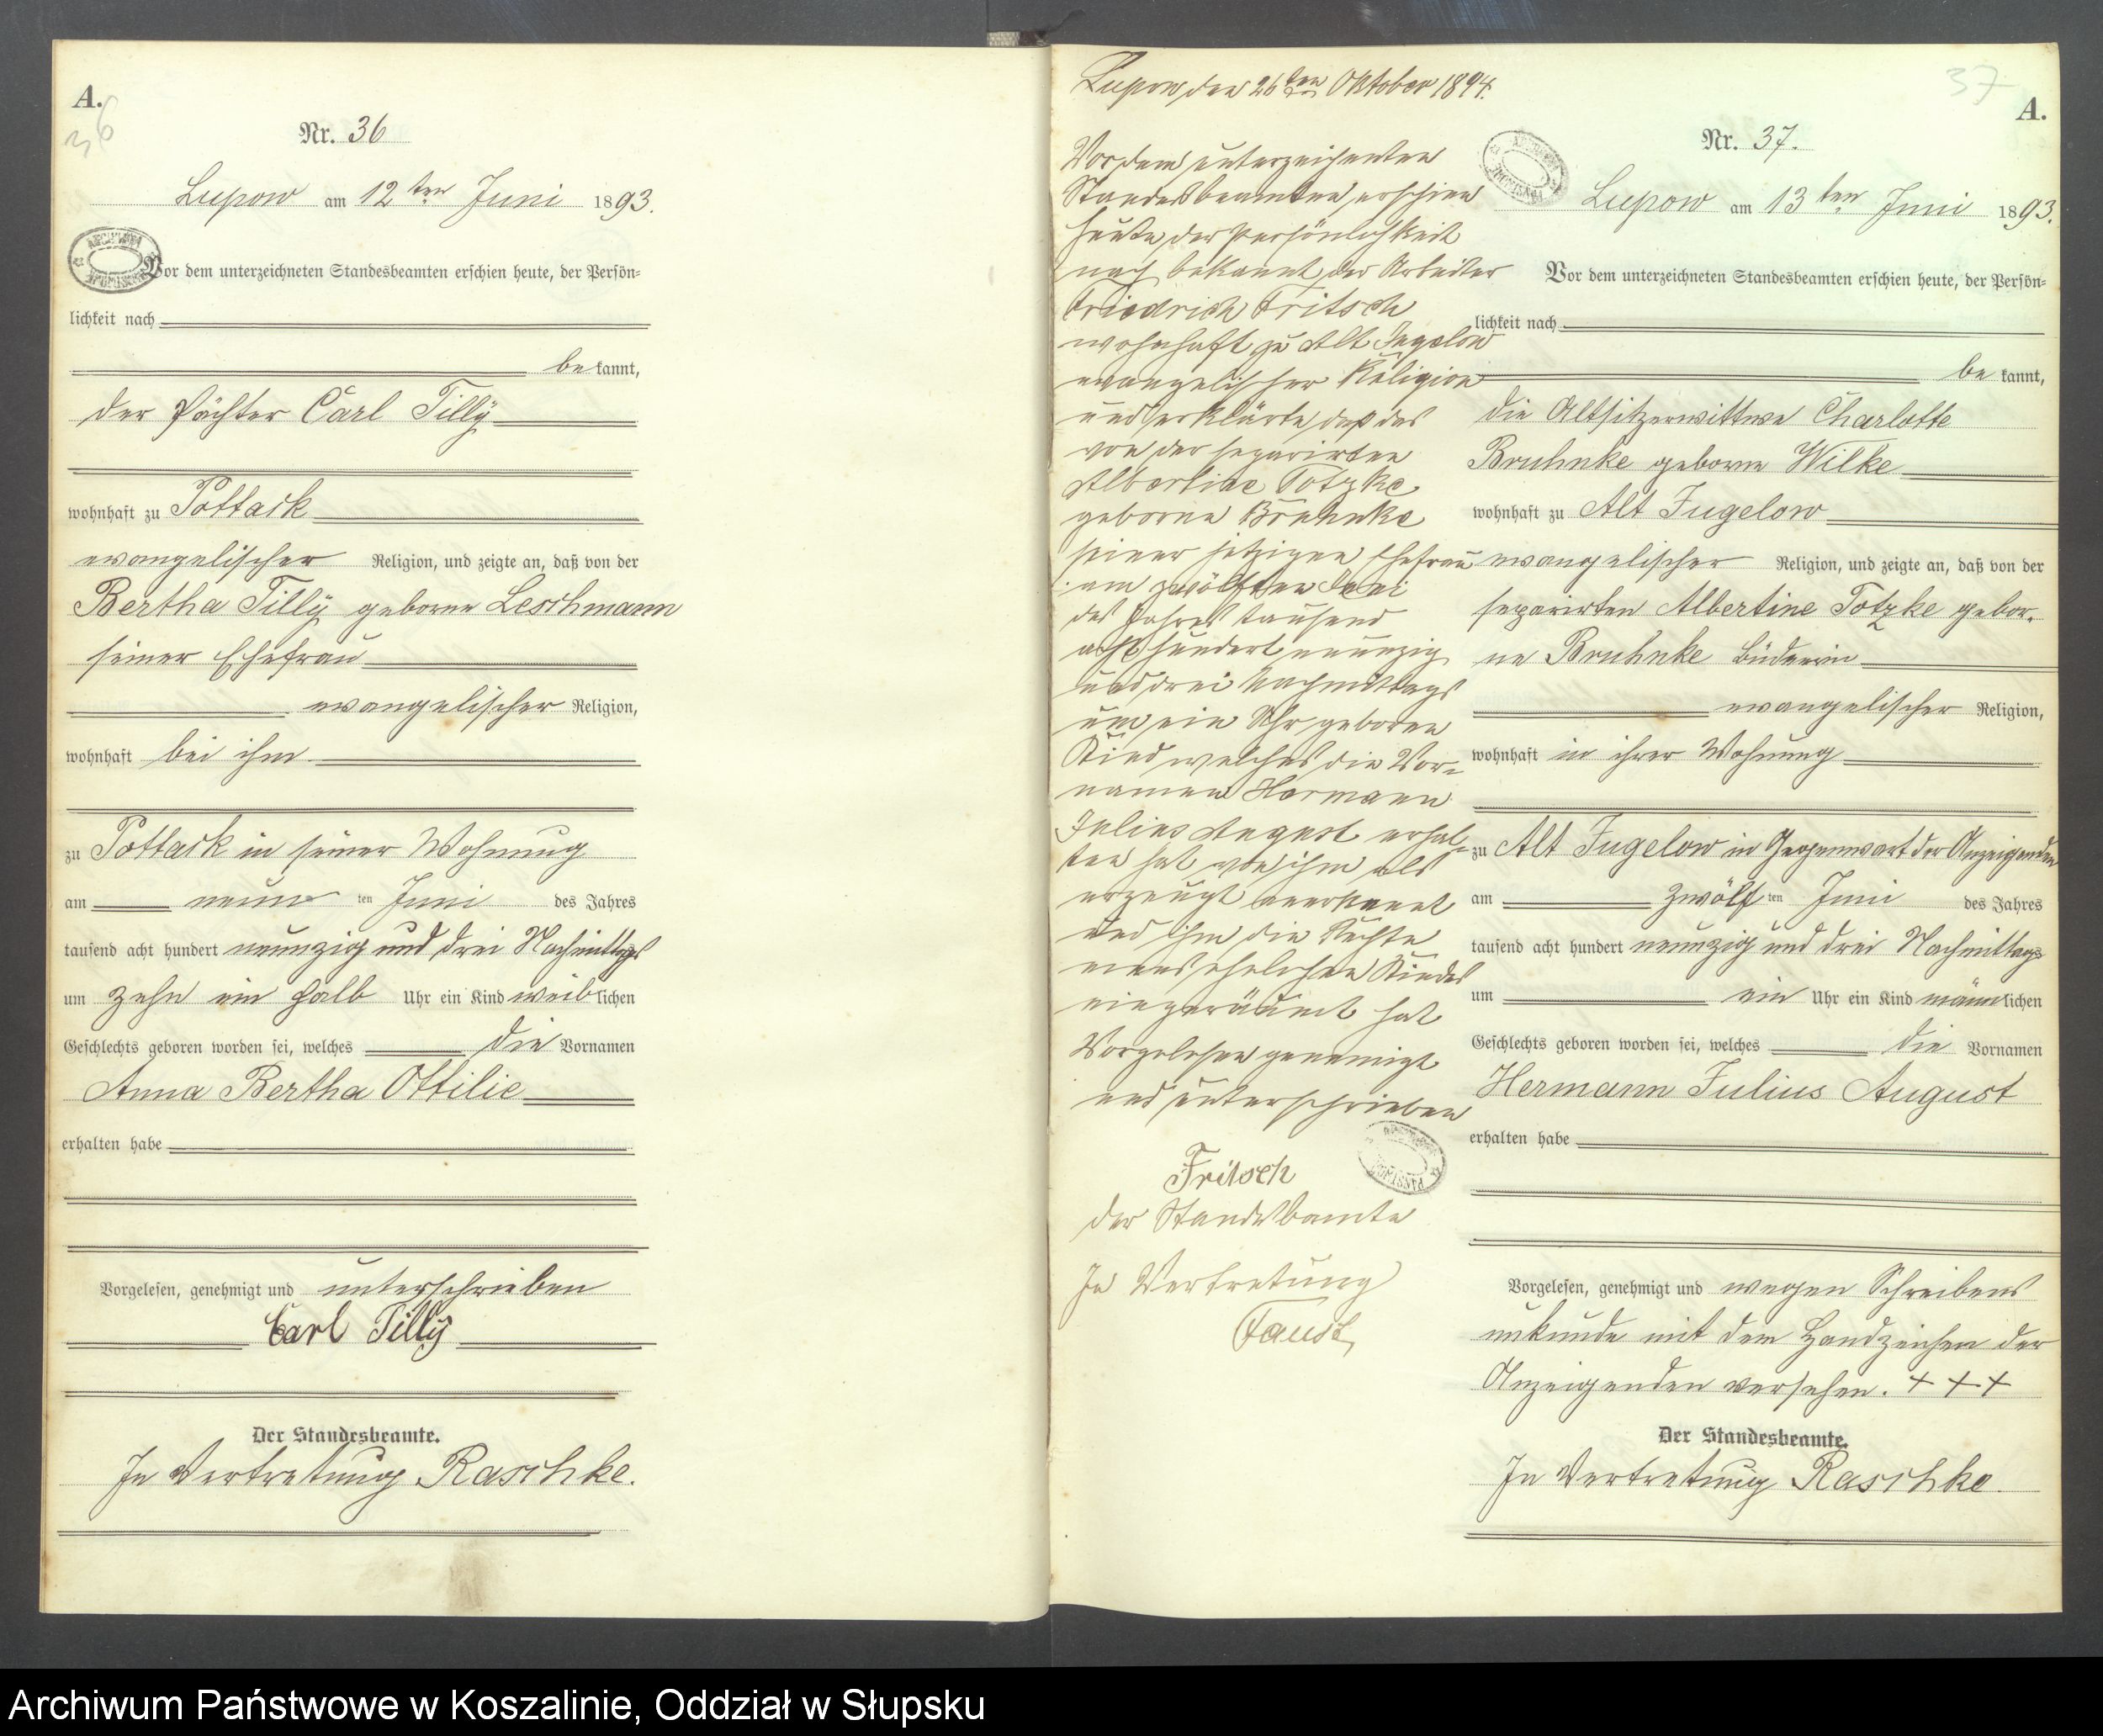 A.
36
Nr. 36
Lupow am 12ten Juni 1893.
Vor dem unterzeichneten Standesbeamten erschien heute, der Persön-
lichkeit nach
be kannt,
der Pächter Carl Tilly
wohnhaft zu Pottack
evangelischer Religion, und zeigte an, daß von der
Bertha Tilly geborne Leschmann
seiner Ehefrau
evangelischer Religion,
wohnhaft bei ihm
zu Pottack in seiner Wohnung
am neun ten Juni des Jahres
tausend acht hundert neunzig und drei Nachmittags
um zehn ein halb Uhr ein Kind weiblichen
Geschlechts geboren worden sei, welches die Vornamen
Anna Bertha Ottilie
erhalten habe
Vorgelesen, genehmigt und unterschrieben
Carl Tilly
Der Standesbeamte.
In Vertretung Raschke.
Lupow den 26ten Oktober 1894.
Vor dem unterzeichneten
Standesbeamten erschien
heute der Persönlichkeit
nach bekannt der Arbeiter
Friedrich Fritsch
wohnhaft zu Alt Jugelow
evangelischer Religion
und erklärte, daß das
von der separirten
Albertine Totzke
geborne Bruhnke
seiner jetzigen Ehefrau
am zwölften Juni
des Jahres tausend
acht hundert neunzig
und drei Nachmittags
um ein Uhr geboren
Kind welches die Vor-
namen Hermann
Julius August erhal-
ten hat von ihm als
erzeugt anerkannt
und ihm die Rechte
eines ehelichen Kindes
eingeräumt hat
Vorgelesen genemigt
und unterschrieben
Fritsch
der Standesbamte
In Vertretung
Faust
37
A.
Nr. 37.
Lupow am 13ten Juni 1893.
Vor dem unterzeichneten Standesbeamten erschien heute, der Persön-
lichkeit nach
be kannt,
die Altsitzerwittwe Charlotte
Bruhnke geborne Wilke
wohnhaft zu Alt Jugelow
evangelischer Religion, und zeigte an, daß von der
separirten Albertine Totzke gebor-
ne Bruhnke Büdnerin
evangelischer Religion,
wohnhaft in ihrer Wohnung
zu Alt Jugelow in Gegenwart der Anzeigenden
am zwölf ten Juni des Jahres
tausend acht hundert neunzig und drei Nachmittags
um ein Uhr ein Kind männlichen
Geschlechts geboren worden sei, welches die Vornamen
Hermann Julius August
erhalten habe
Vorgelesen, genehmigt und wegen Schreibens
unkunde mit dem Handzeichen der
Anzeigenden versehen. + + +
Der Standesbeamte.
In Vertretung Raschke.
Archiwum Państwowe w Koszalinie, Oddział w Słupsku